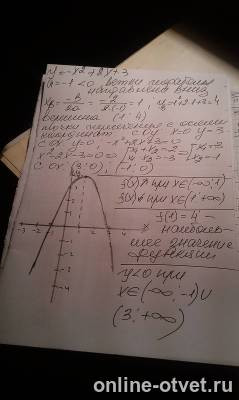 y=-x²+2x+3
a=-1<0 ветви параболы
направлены вниз
x₀=-b/2a=-2/2·(-1)=1, y=-1+2+3=4
вершина (1;4)
точки пересечения с осями
координат с Oy x=0 y=3
с Ox y=0, -x²+2x+3=0
x²-2x-3=0
с Ox (3;0), (-1;0)
f(x)↑ при x∈(-∞;1)
f(x)↓ при x∈(1;+∞)
f(1)=4 -
наиболь-
шее значение
функции
y<0 при
x∈(-∞;-1)∪
(3;+∞)
online-otvet.ru